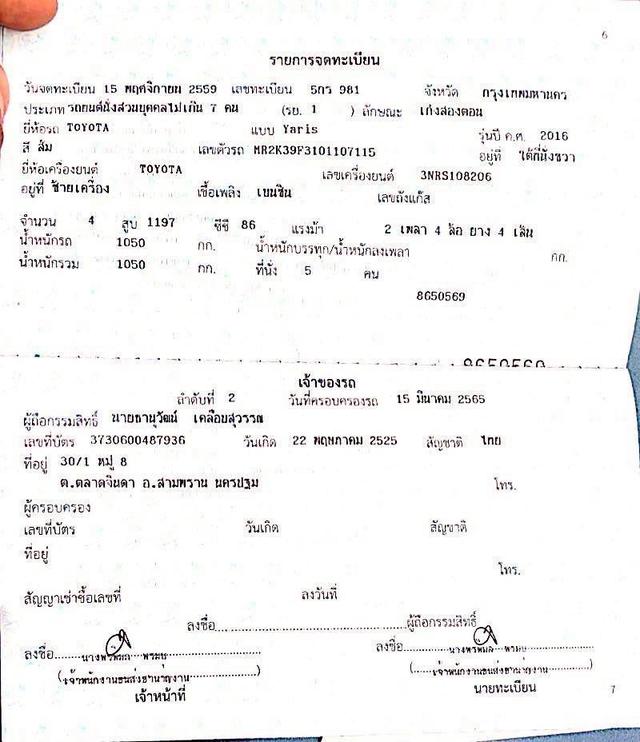 6
รายการจดทะเบียน
วันจดทะเบียน 15 พฤศจิกายน 2559 เลขทะเบียน 5กว 981 จังหวัด กรุงเทพมหานคร
ประเภท รถยนต์นั่งส่วนบุคคลไม่เกิน 7 คน (รย. 1 ) ลักษณะ เก๋งสองตอน
ยี่ห้อรถ TOYOTA แบบ Yaris รุ่นปี ค.ศ. 2016
สี ส้ม เลขตัวรถ MR2K39F3101107115 อยู่ที่ ใต้ที่นั่งขวา
ยี่ห้อเครื่องยนต์ TOYOTA เลขเครื่องยนต์ 3NRS108206
อยู่ที่ ซ้ายเครื่อง เชื้อเพลิง เบนซิน เลขถังแก๊ส
จำนวน 4 สูบ 1197 ซีซี 86 แรงม้า 2 เพลา 4 ล้อ ยาง 4 เส้น
น้ำหนักรถ 1050 กก. น้ำหนักบรรทุก/น้ำหนักลงเพลา กก.
น้ำหนักรวม 1050 กก. ที่นั่ง 5 คน
8650569
8650569
เจ้าของรถ
ลำดับที่ 2 วันที่ครอบครองรถ 15 มีนาคม 2565
ผู้ถือกรรมสิทธิ์ นายธานุวัฒน์ เคลือบสุวรรณ
เลขที่บัตร 3730600487936 วันเกิด 22 พฤษภาคม 2525 สัญชาติ ไทย
ที่อยู่ 30/1 หมู่ 8
ต.ตลาดจินดา อ.สามพราน นครปฐม โทร.
ผู้ครอบครอง
เลขที่บัตร วันเกิด สัญชาติ
ที่อยู่
โทร.
สัญญาเช่าซื้อเลขที่ ลงวันที่
ลงชื่อ ผู้ถือกรรมสิทธิ์
ลงชื่อ ลงชื่อ
(เจ้าพนักงานขนส่งชำนาญงาน) (เจ้าพนักงานขนส่งชำนาญงาน)
เจ้าหน้าที่ นายทะเบียน
7